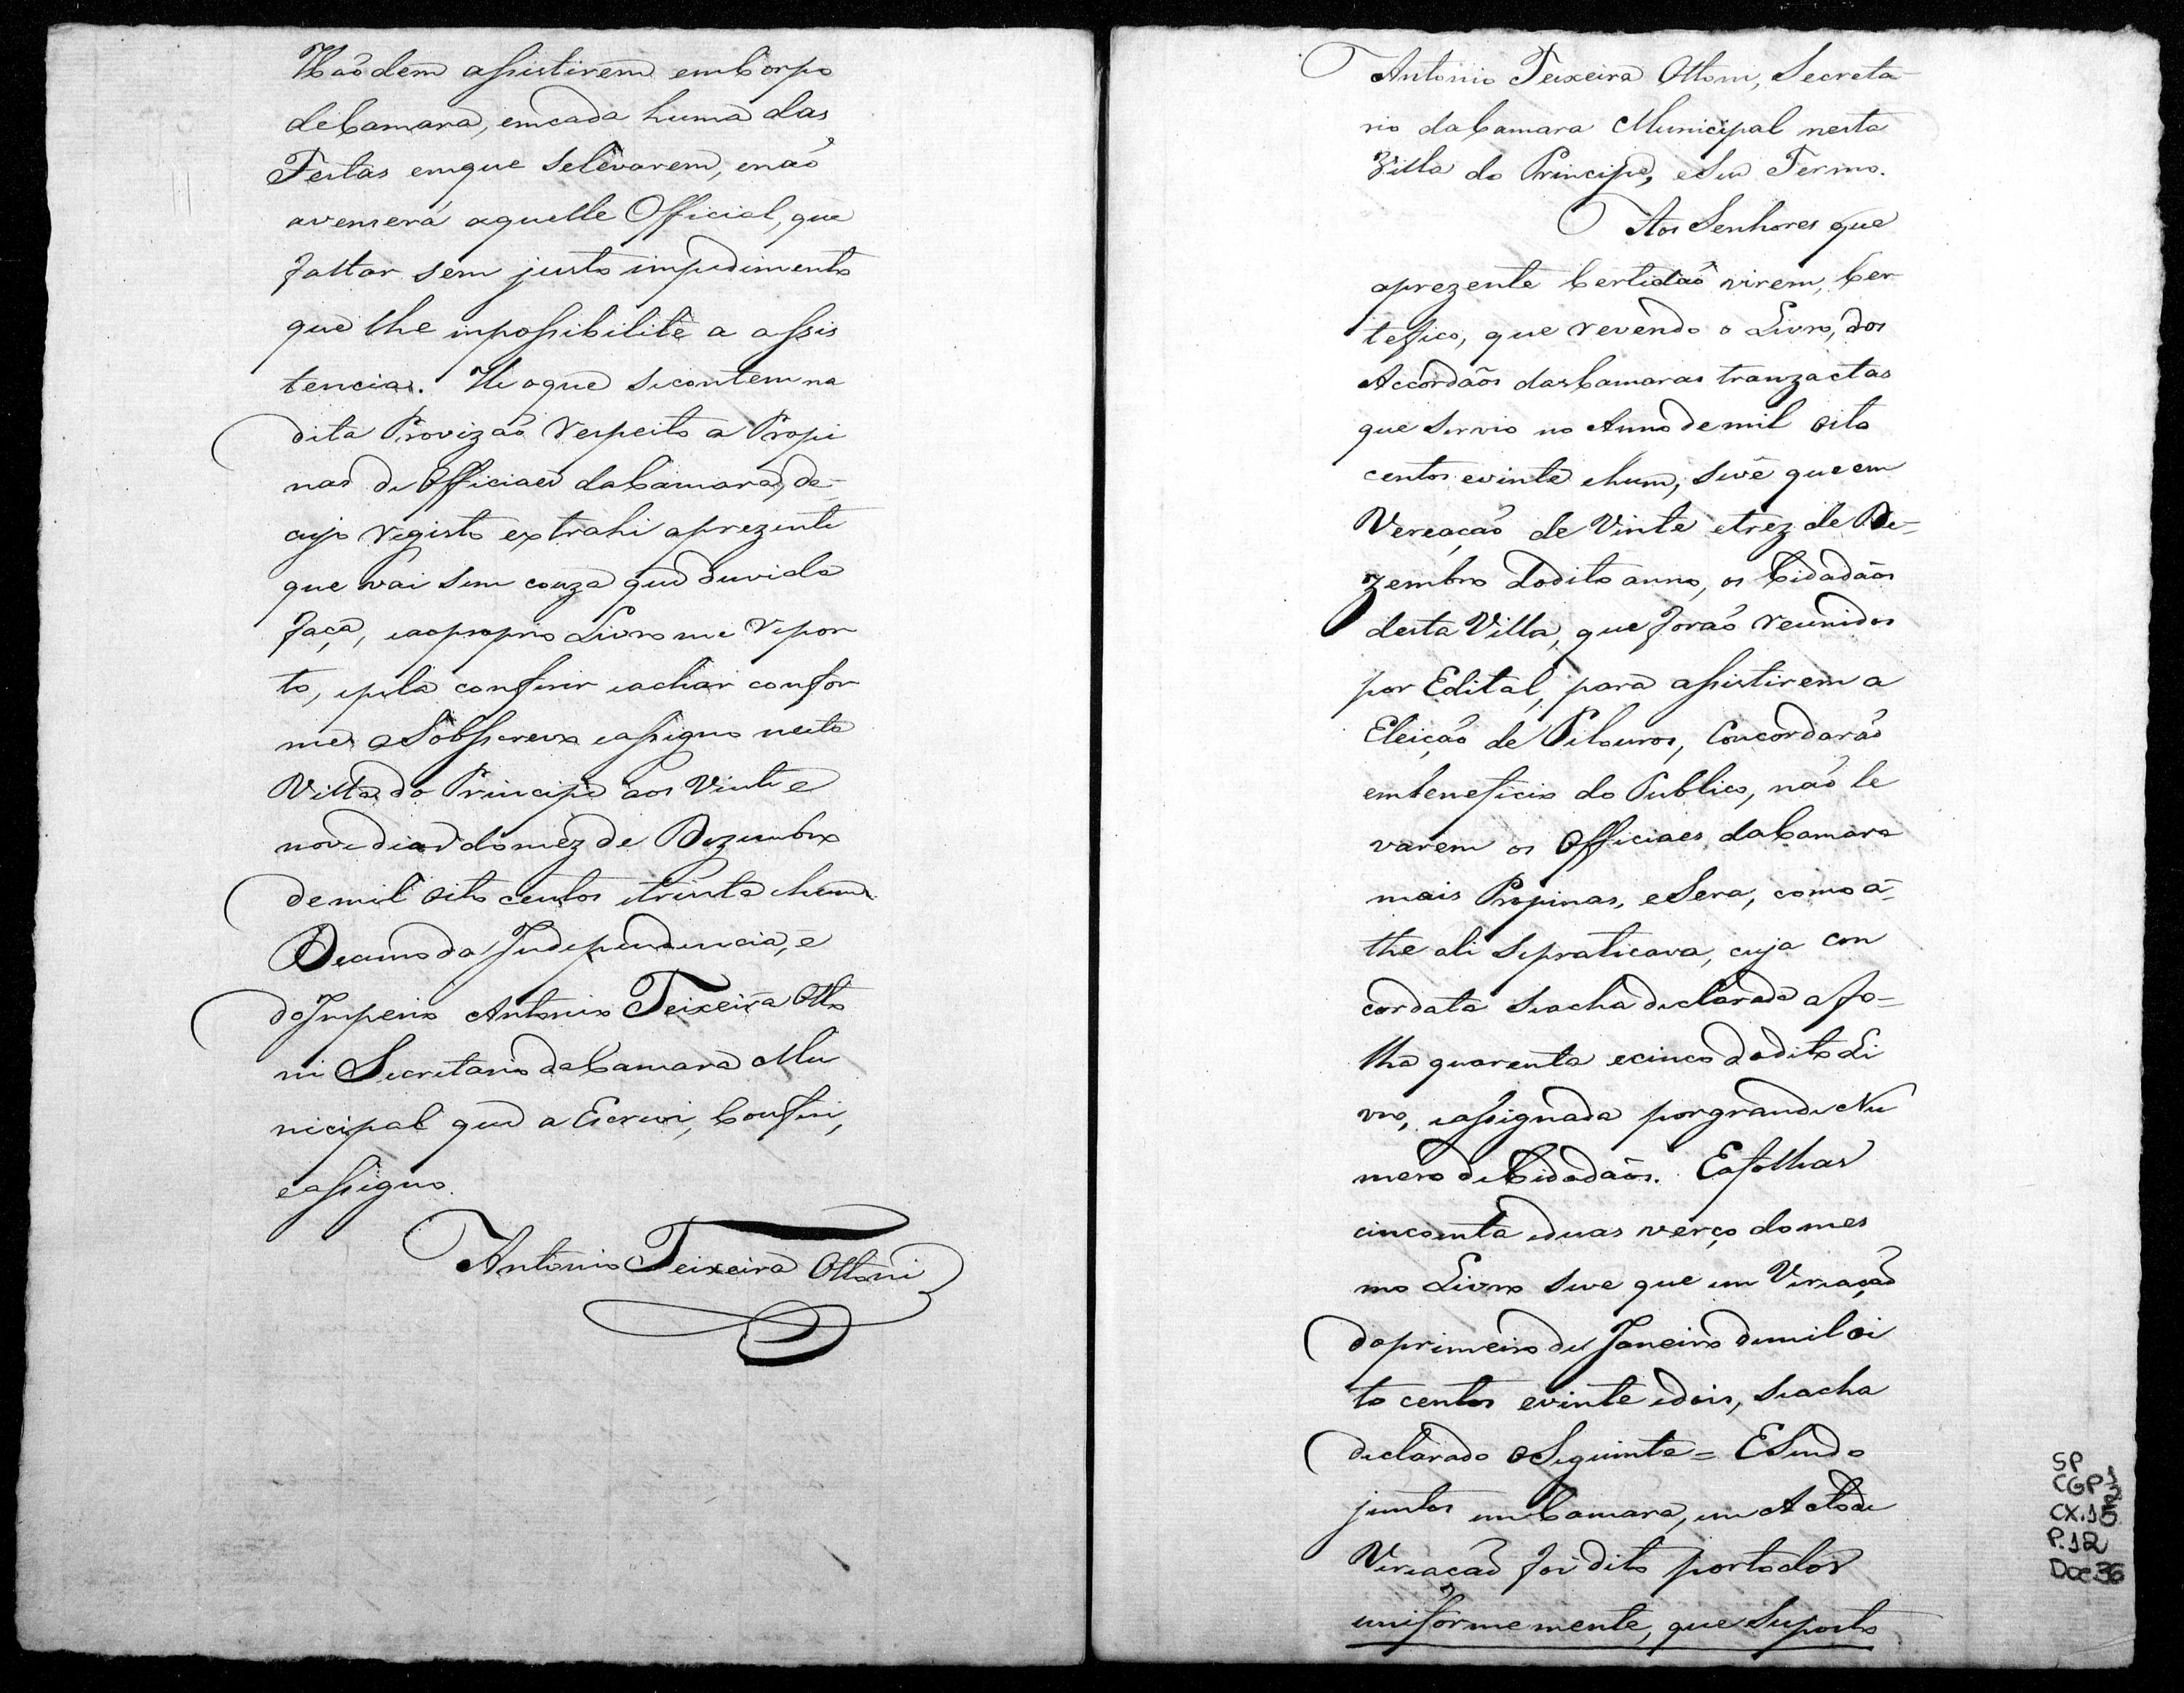 Haõ dem assistirem em Corpo
de Camara, em cada huma das
Festas em que se levarem, e naõ
avenserá aquelle Official, que
faltar sem justo impedimento
que lhe inpossibilite a assis
tencia. He o que se contem na
dita Provizaõ respeito a Propi
nas de Officiaes da Camara, de-
cujo registo extrahi aprezente
que vai sem couza que duvida
faça, e ao proprio Livro me repor
to, e pela conferir e achar confor
me a Sobscrevo e assigno nesta
Villa do Principe aos Vinte e
nove dias do mez de Dezembro
de mil oito centos e trinta e hum
Decimo da Independencia, e
do Imperio Antonio Teixeira Otto
ni Secretario da Camara Mu
nicipal que a Escrevi, Conferi,
e assigno.
Antonio Teixeira Ottoni
Antonio Teixeira Ottoni, Secreta-
rio da Camara Municipal nesta
Villa do Principe, e Seu Termo.
Aos Senhores que
aprezente Certidaõ virem, Cer
tefico, que revendo o Livro, dos
Accordaõs das Camaras tranzactas
que servio no Anno de mil oito
centos e vinte e hum, se vê que em
Vereaçaõ de Vinte e trez de De-
zembro do dito anno, os Cidadaõs
desta Villa, que foraõ reunidos
por Edital, para assistirem a
Eleiçaõ de Pilouros, Concordaraõ
em beneficio do Publico, naõ le
varem os Officiaes da Camara
mais Propinas, e Sera, como a-
the ali se praticava, cuja con
cordata se acha declarada a fo-
lha quarenta e cinco do dito Li
vro, e assignada por grande Nu
mero de Cidadaõs. E a folhas
cincoenta e duas verço do mes
mo Livro se ve que em Vereaçaõ
do primeiro de Janeiro de mil oi
to centos e vinte e dois, se acha
declarado o Seguinte = E Sendo
juntos em Camara, em Acto de
Vereaçaõ foi dito por todos
uniformemente, que Suposto
SP
CGP 1
CX.15
P.12
Doc 36